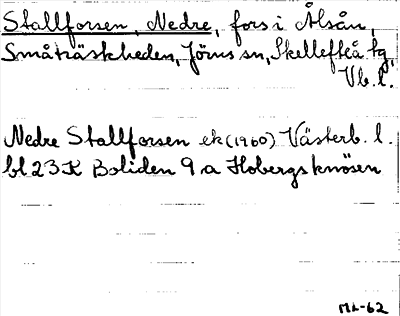 Stallforsen, Nedre, fors i Ålsån,
Småträskheden, Jörns sn, Skellefteå tg,
Vb.l.
Nedre Stallforsen ek (1960) Västerb. l.
bl 23 K Boliden 9 a Hobergsknösen
ML-62